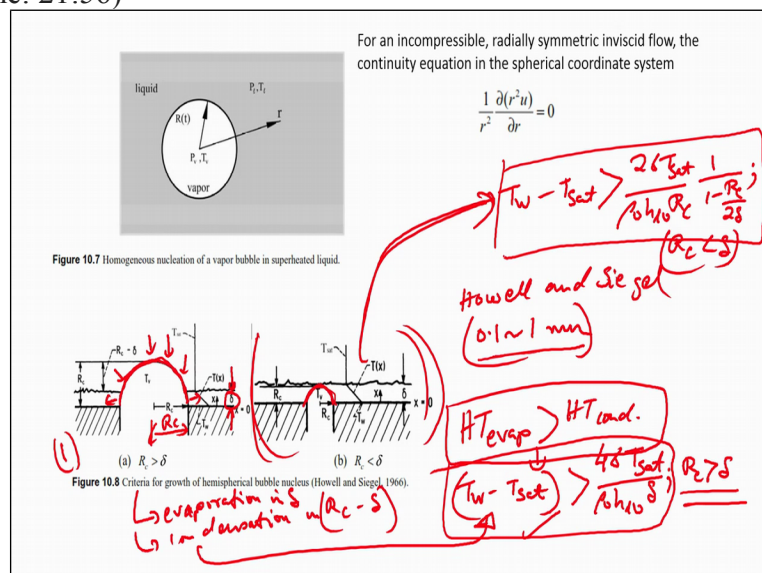 e: 21:50)
For an incompressible, radially symmetric inviscid flow, the
continuity equation in the spherical coordinate system
1/r² ∂(r²u)/∂r = 0
liquid
P_l, T_l
R(t)
r
P_v, T_v
vapor
Figure 10.7 Homogeneous nucleation of a vapor bubble in superheated liquid.
T_w - T_sat > 2σT_sat/(ρ_v h_lv R_c) 1/(1 - R_c/2δ);
(R_c < δ)
Howell and Siegel
(0.1 ~ 1 mm)
R_c - δ
T(x)
R_c
T_v
δ
x = 0
R_c
T_w
R_c
T(x)
R_c
T_v
δ
x = 0
R_c
T_w
(1)
(a) R_c > δ
(b) R_c < δ
Figure 10.8 Criteria for growth of hemispherical bubble nucleus (Howell and Siegel, 1966).
HT evap > HT cond.
(T_w - T_sat) > 4σT_sat/(ρ_v h_lv δ); R_c > δ
↳ evaporation in δ
↳ condensation in (R_c - δ)